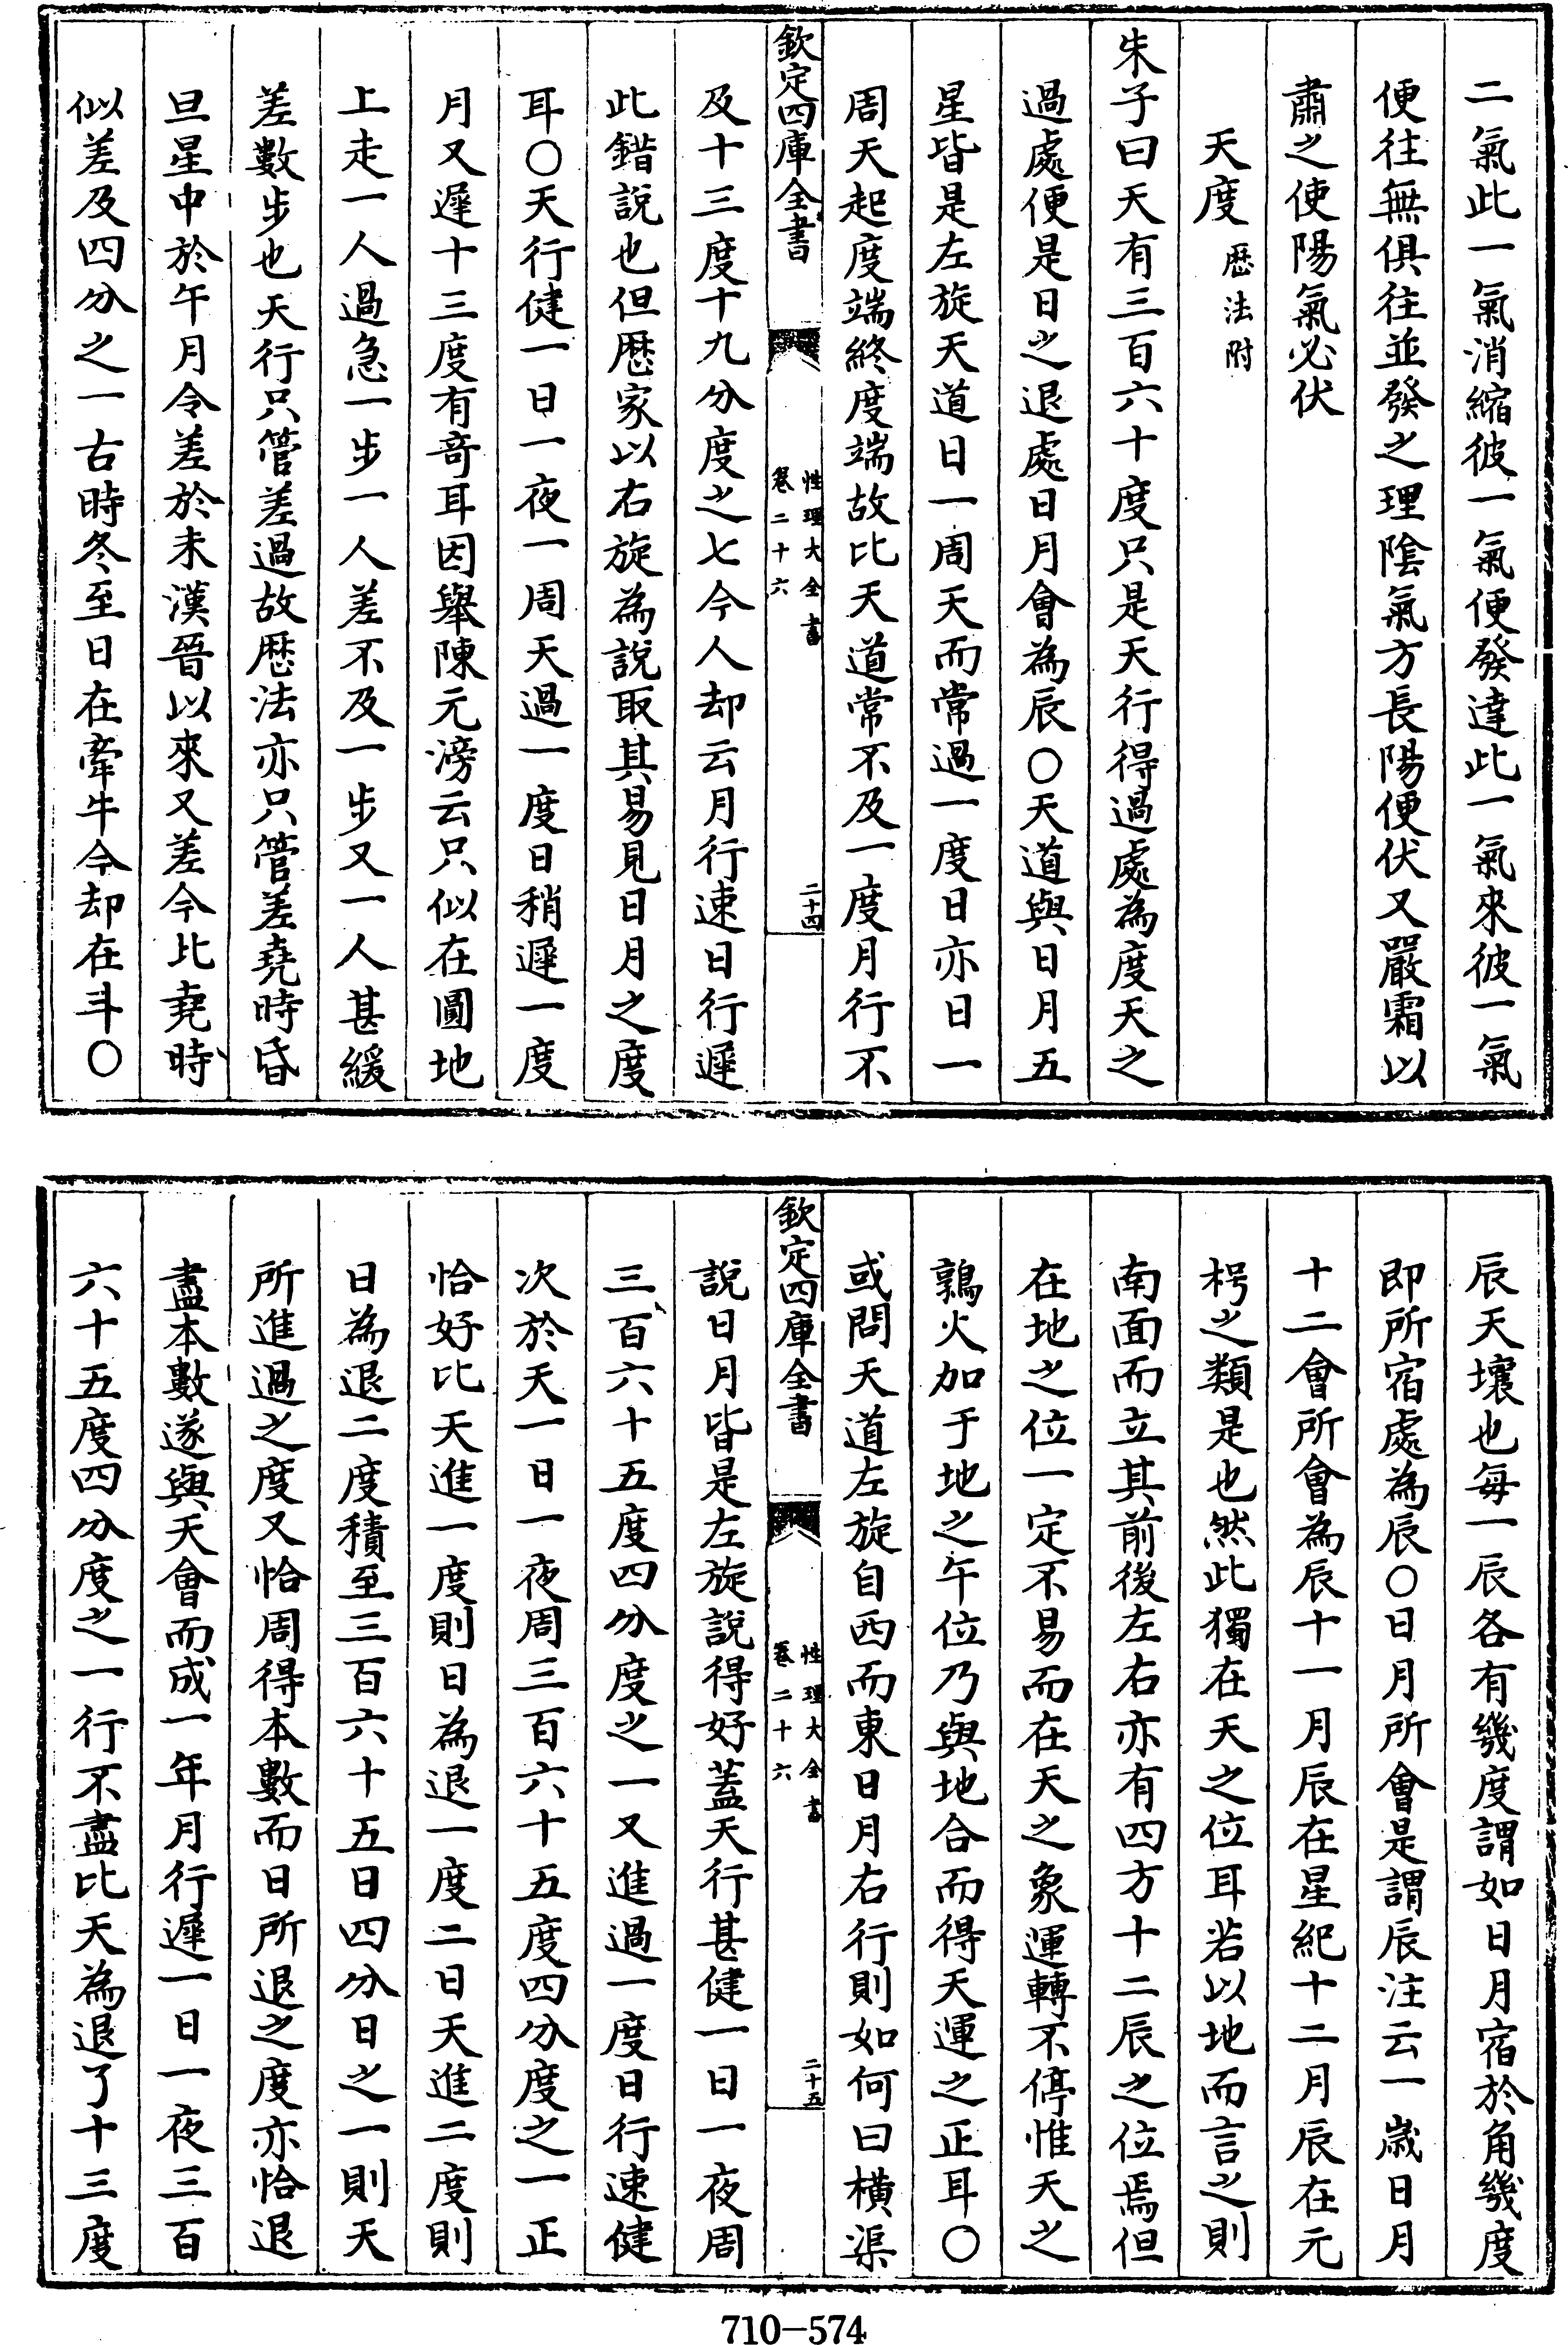 二氣此一氣消縮彼一氣便發達此一氣來彼一氣
便往無俱往並發之理陰氣方長陽便伏又嚴霜以
肅之使陽氣必伏
天度 歴法附
朱子曰天有三百六十度只是天行得過處為度天之
過處便是日之退處日月會為辰○天道與日月五
星皆是左旋天道日一周天而常過一度日亦日一
周天起度端終度端故比天道常不及一度月行不
欽定四庫全書 性理大全書 卷二十六 二十四
及十三度十九分度之七今人却云月行速日行遲
此錯說也但歴家以右旋為說取其易見日月之度
耳○天行健一日一夜一周天過一度日稍遲一度
月又遲十三度有奇耳因舉陳元滂云只似在圓地
上走一人過急一步一人差不及一步又一人甚緩
差數步也天行只管差過故歴法亦只管差堯時昏
旦星中於午月令差於未漢晉以來又差今比堯時
似差及四分之一古時冬至日在牽牛今却在斗○
辰天壤也每一辰各有幾度謂如日月宿於角幾度
即所宿處為辰○日月所會是謂辰注云一歲日月
十二會所會為辰十一月辰在星紀十二月辰在元
枵之類是也然此獨在天之位耳若以地而言之則
南面而立其前後左右亦有四方十二辰之位焉但
在地之位一定不易而在天之象運轉不停惟天之
鶉火加于地之午位乃與地合而得天運之正耳○
或問天道左旋自西而東日月右行則如何曰橫渠
欽定四庫全書 性理大全書 卷二十六 二十五
說日月皆是左旋說得好蓋天行甚健一日一夜周
三百六十五度四分度之一又進過一度日行速健
次於天一日一夜周三百六十五度四分度之一正
恰好比天進一度則日為退一度二日天進二度則
日為退二度積至三百六十五日四分日之一則天
所進過之度又恰周得本數而日所退之度亦恰退
盡本數遂與天會而成一年月行遲一日一夜三百
六十五度四分度之一行不盡比天為退了十三度
710-574